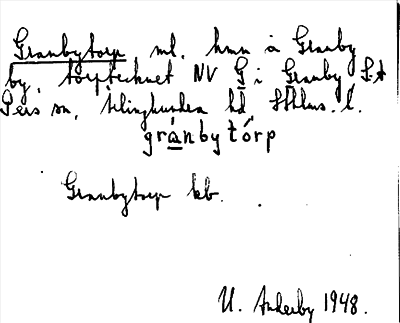 Granbytorp ml. hmn å Granby
by, torptecknet NV G i Granby S:t
Pers sn, Seminghundra hd Sthlms. l.
gránbytórp
Granbytorp kb.
U. Anderby 1948.